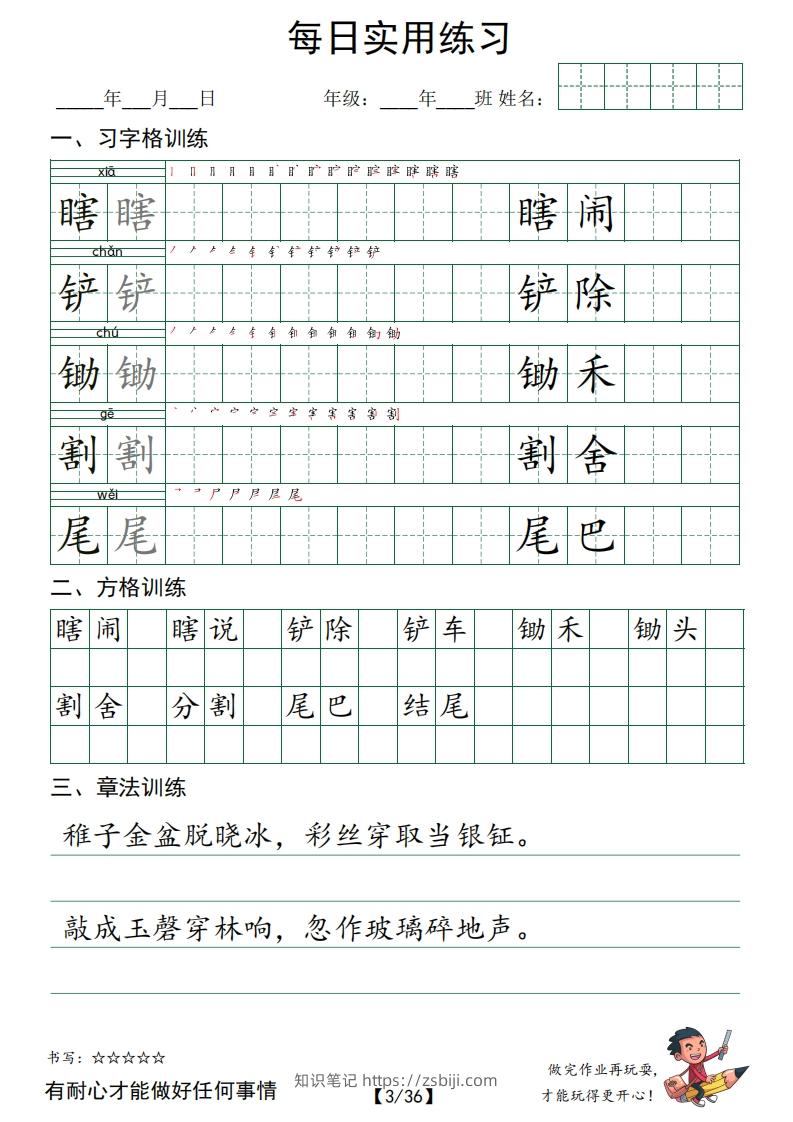 每日实用练习
_____年___月___日 年级：____年____班 姓名：
一、习字格训练
xiā
瞎 瞎 瞎 闹
chǎn
铲 铲 铲 除
chú
锄 锄 锄 禾
gē
割 割 割 舍
wěi
尾 尾 尾 巴
二、方格训练
瞎 闹 瞎 说 铲 除 铲 车 锄 禾 锄 头
割 舍 分 割 尾 巴 结 尾
三、章法训练
稚子金盆脱晓冰，彩丝穿取当银钲。
敲成玉磬穿林响，忽作玻璃碎地声。
书写：☆☆☆☆☆
有耐心才能做好任何事情
知识笔记 https://zsbiji.com
【3/36】
做完作业再玩耍，
才能玩得更开心！